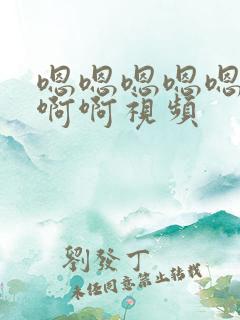 嗯嗯嗯嗯嗯
啊啊視頻
劉發丁
未经同意禁止转载